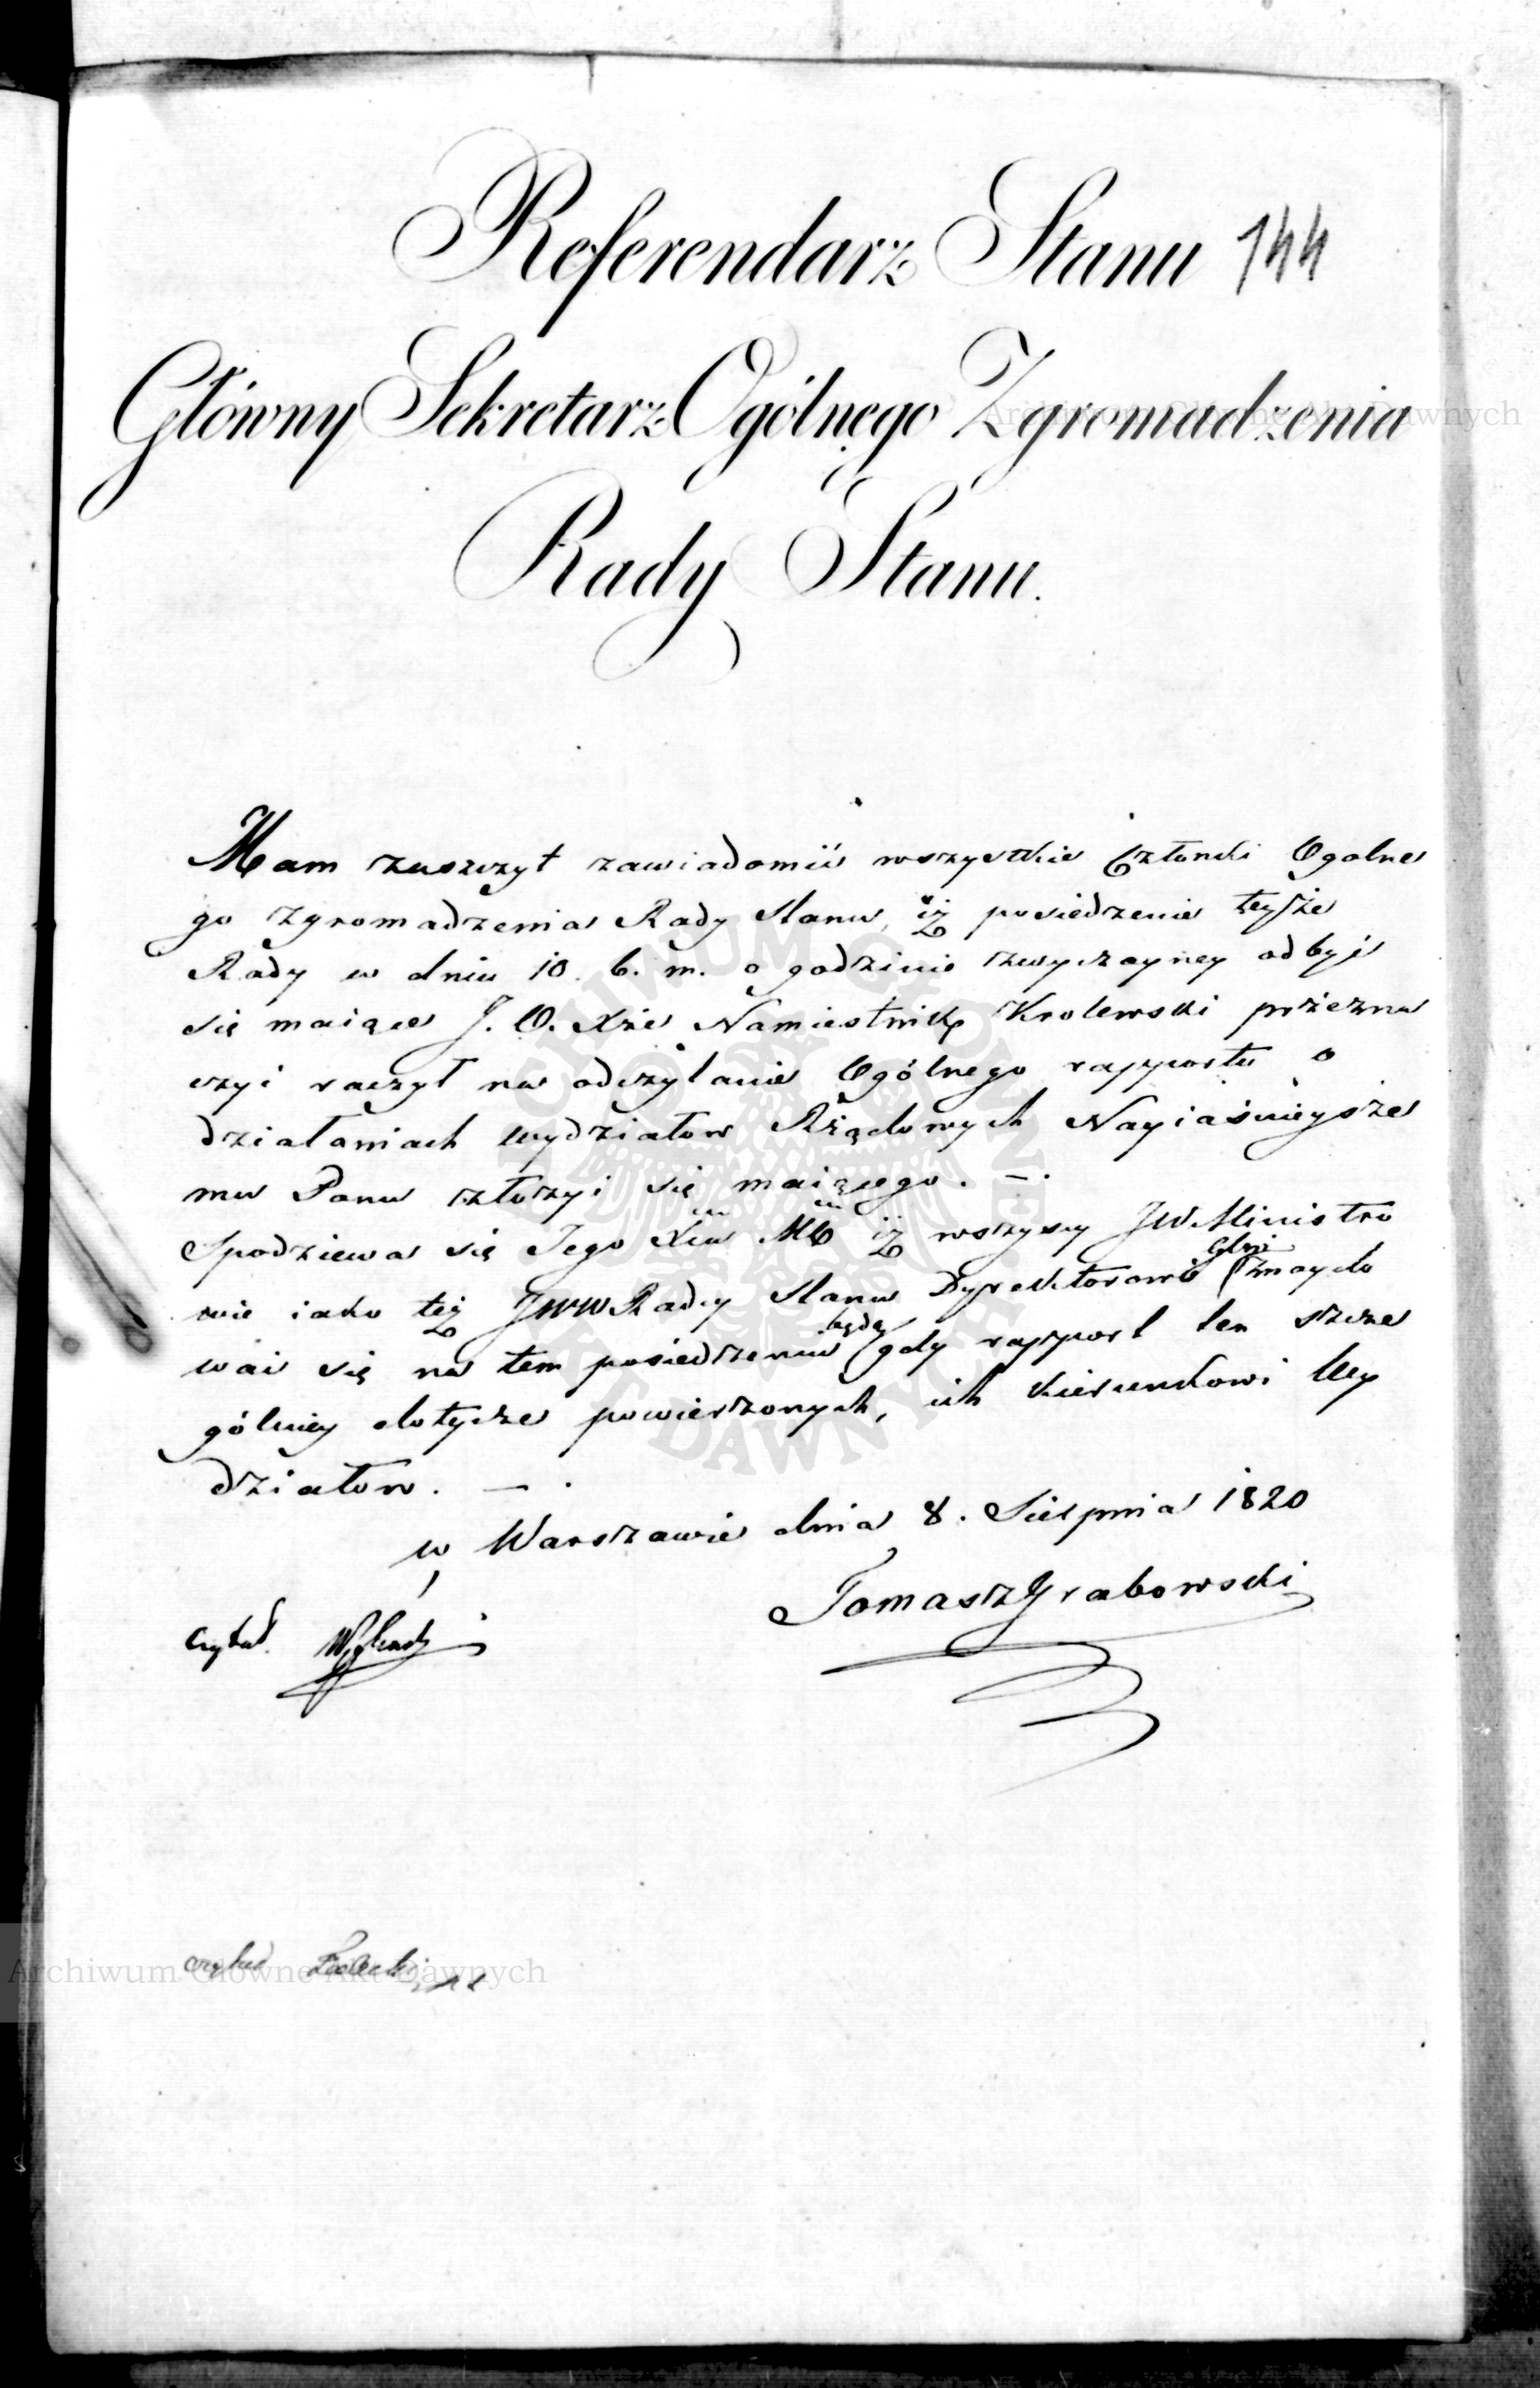 Referendarz Stanu 144
Główny Sekretarz Ogólnego Zgromadzenia
Rady Stanu.
Mam zaszczyt zawiadomić wszystkie Członki Ogolne
go Zgromadzenia Rady Stanu, iż posiedzenie teyże
Rady w dniu 10. b. m. o godzinie zwyczayney odbyć
się maiące J. O. Xże Namiestnik Krolewski przezna
czyć raczył na odczytanie Ogólnego rapportu o
działaniach wydziałow Rządowych Nayiaśnieysze
mu Panu złożyć się maiącego. —.
Spodziewa się Jego Xca Mć iż wszyscy JWMinistro
wie iako też JWWRadcy Stanu Dyrektorowie Głni znaydo
wać się na tem posiedzeniu będą gdy rapport ten szcze
gólniey dotycze powierzonych, ich kierunkowi Wy
działow. — .
w Warszawie dnia 8. Sierpnia 1820
Tomasz Grabowski
Czytał.
czytał
Archiwum Główne Akt Dawnych
Archiwum Główne Akt Dawnych